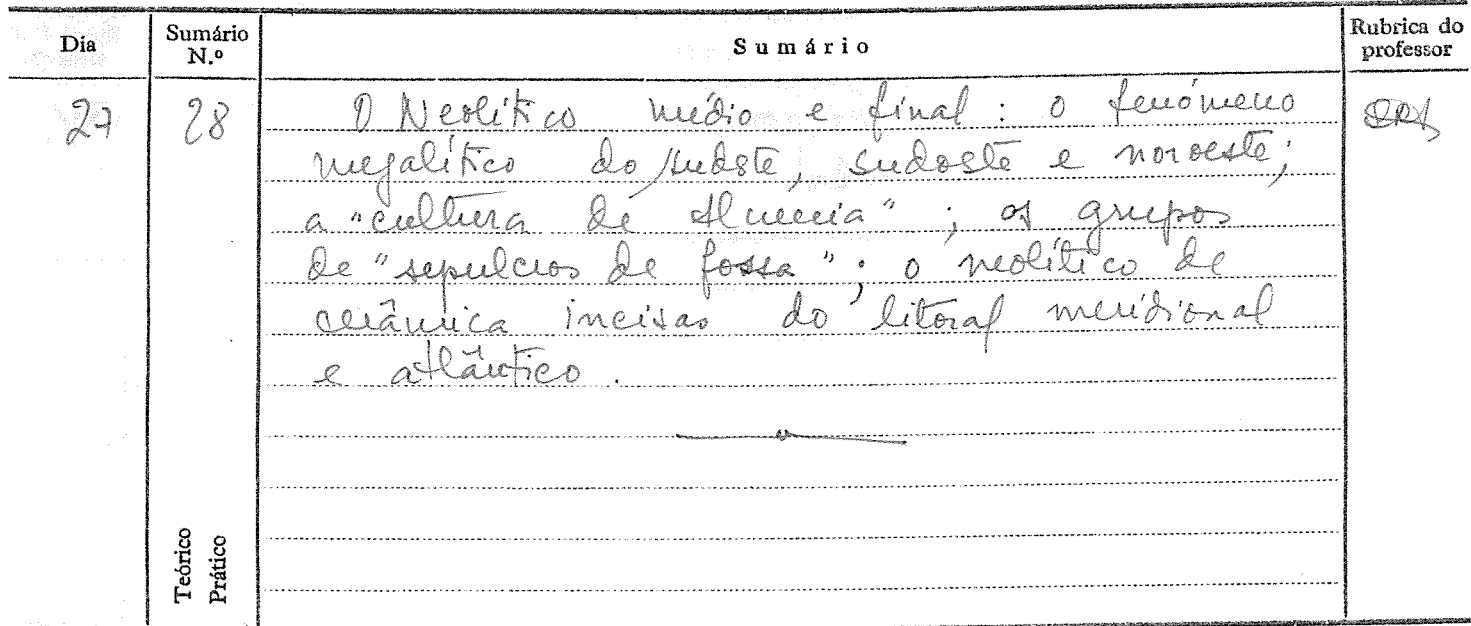 Dia
Sumário N.º
Sumário
Rubrica do professor
27
28
O Neolítico médio e final : o fenómeno
megalítico do sudste, sudoste e noroeste;
a "cultura de Almeria" ; os grupos
de "sepulcros de fossa" ; o neolítico de
cerâmica incisas do litoral meridional
e atlântico.
Teórico
Prático